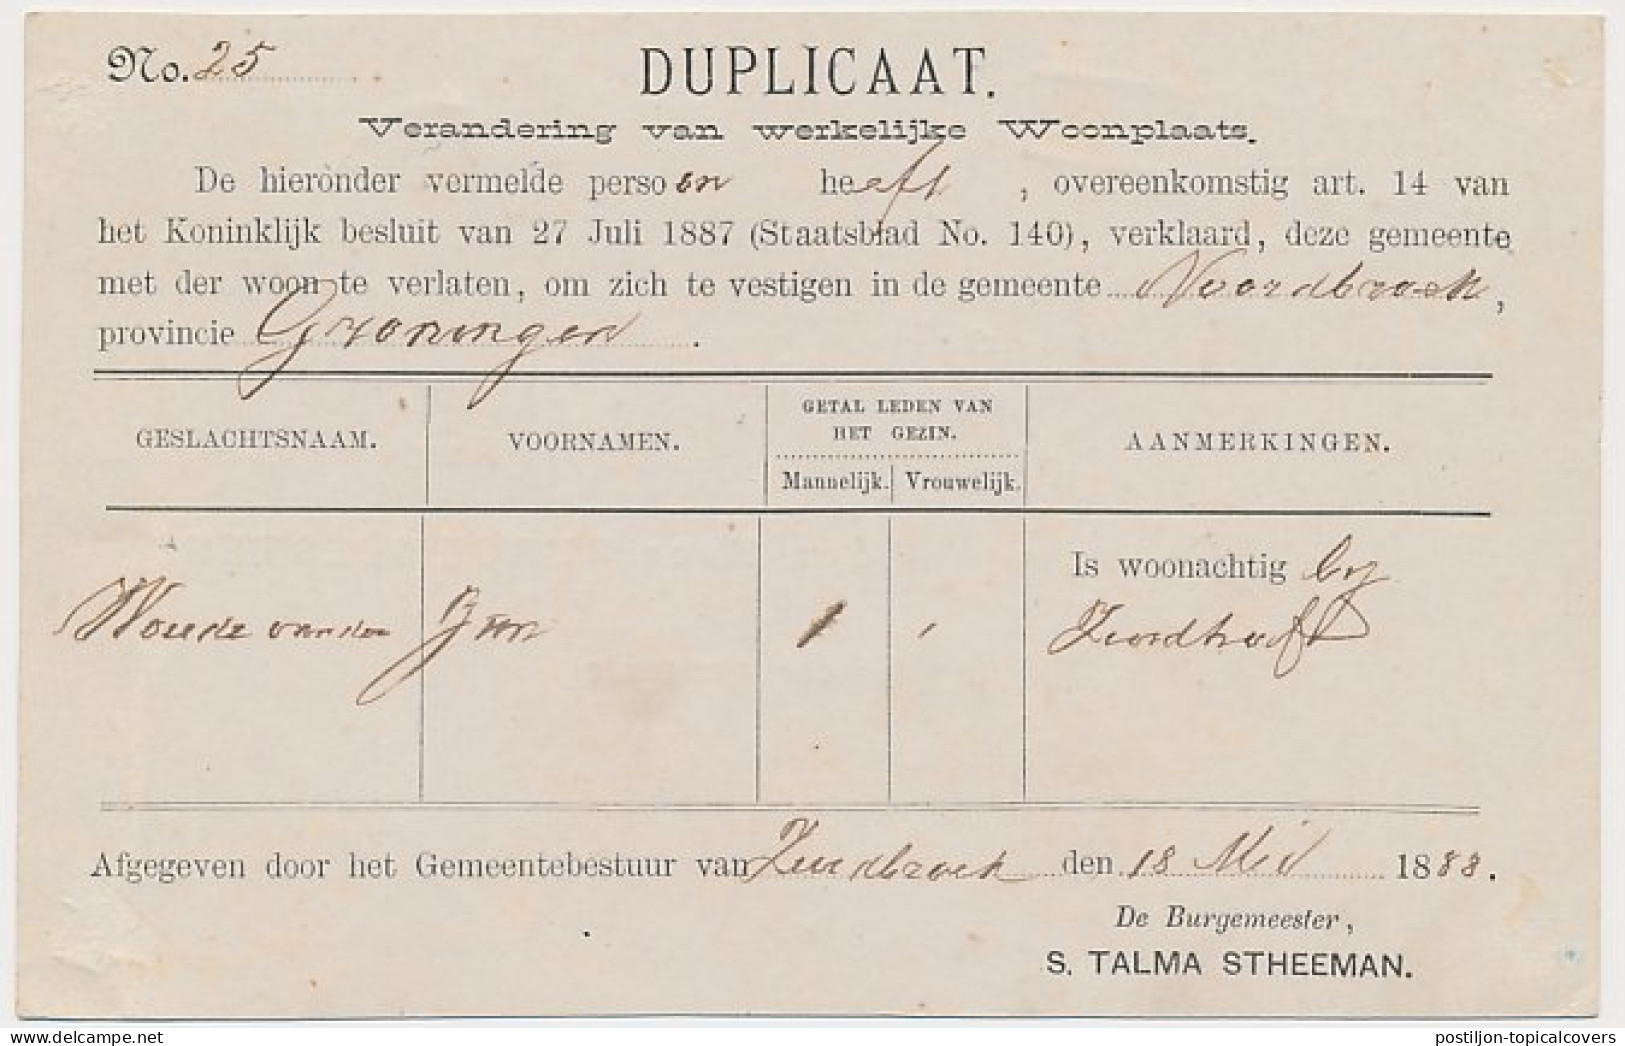 No. 25
DUPLICAAT.
Verandering van werkelijke Woonplaats.
De hieronder vermelde persoon heeft , overeenkomstig art. 14 van
het Koninklijk besluit van 27 Juli 1887 (Staatsblad No. 140), verklaard, deze gemeente
met der woon te verlaten, om zich te vestigen in de gemeente Noordbroek,
provincie Groningen.
GESLACHTSNAAM. VOORNAMEN. GETAL LEDEN VAN HET GEZIN. AANMERKINGEN.
Mannelijk. Vrouwelijk.
Is woonachtig by
Woude van der Jan 1
Afgegeven door het Gemeentebestuur van Zuidbroek den 18 Mei 1888.
De Burgemeester,
S. TALMA STHEEMAN.
www.delcampe.net
postiljon-topicalcovers